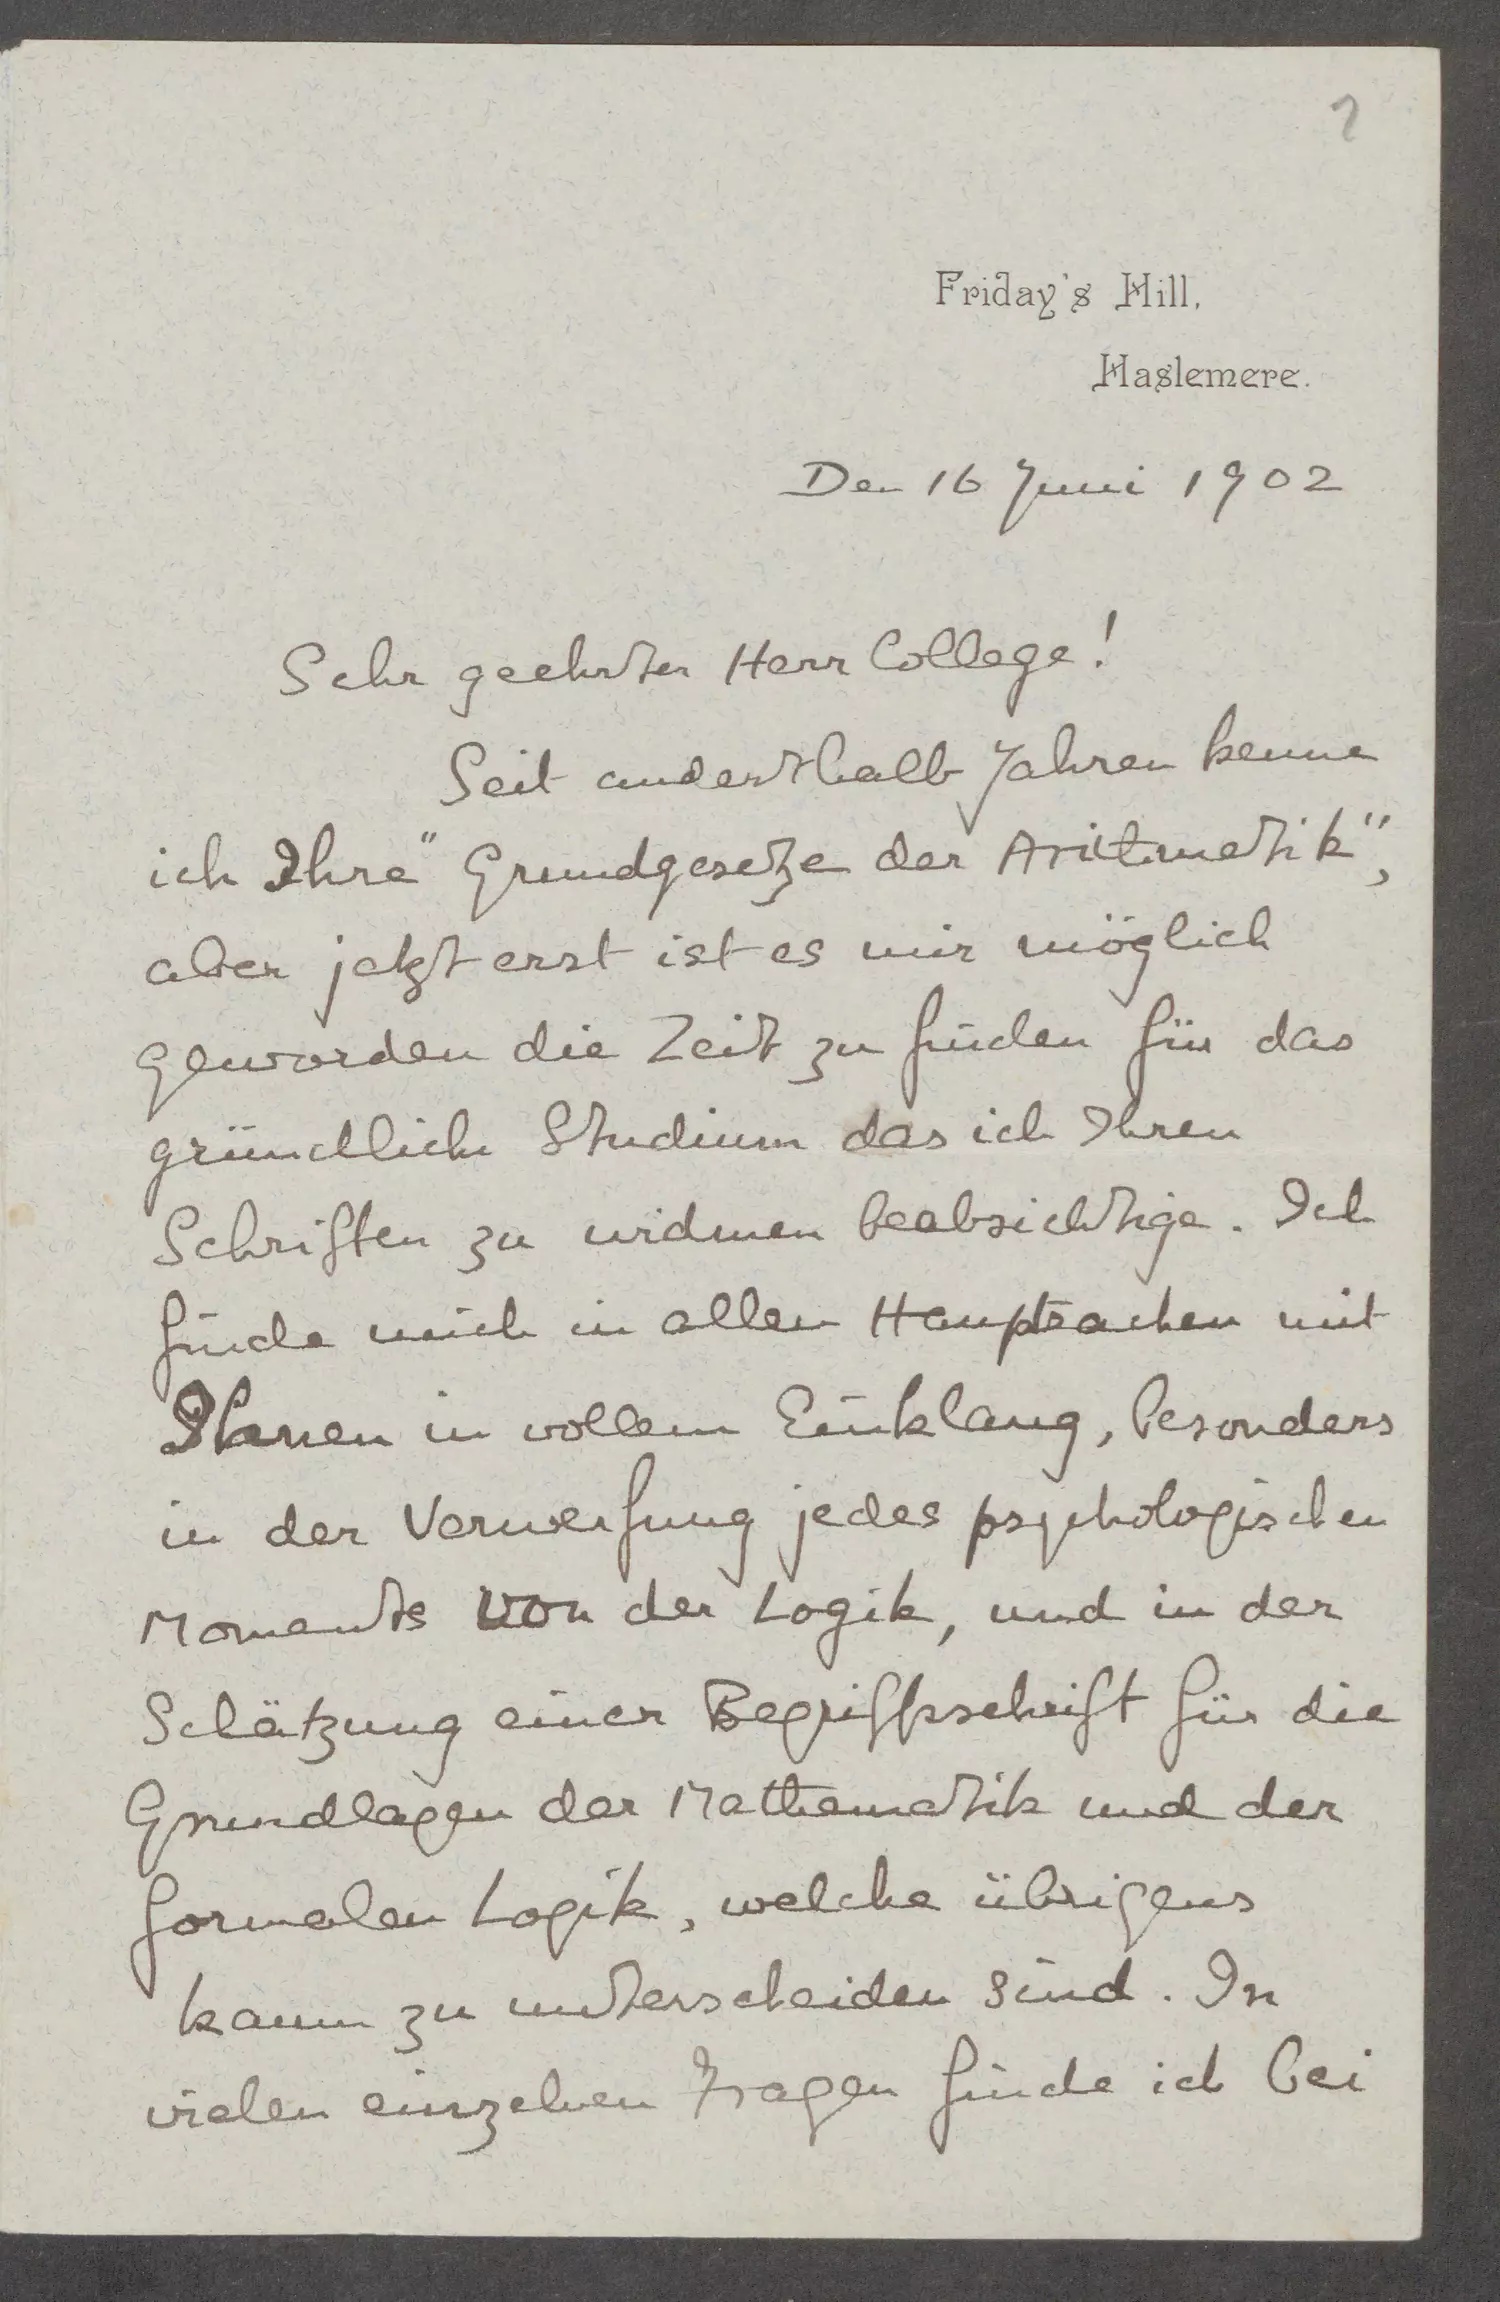 2
Friday's Hill,
Haslemere.
Den 16 Juni 1902
Sehr geehrter Herr College!
Seit anderthalb Jahren kenne
ich Ihre "Grundgesetze der Aritmetik",
aber jetzt erst ist es mir möglich
geworden die Zeit zu finden für das
gründliche Studium das ich Ihren
Schriften zu widmen beabsichtige. Ich
finde mich in allen Hauptsachen mit
Ihnen in vollem Einklang, besonders
in der Verwerfung jedes psychologischen
Moments von der Logik, und in der
Schätzung einer Begriffsschrift für die
Grundlagen der Mathematik und der
formalen Logik, welche übrigens
kaum zu unterscheiden sind. In
vielen einzelnen Fragen finde ich bei